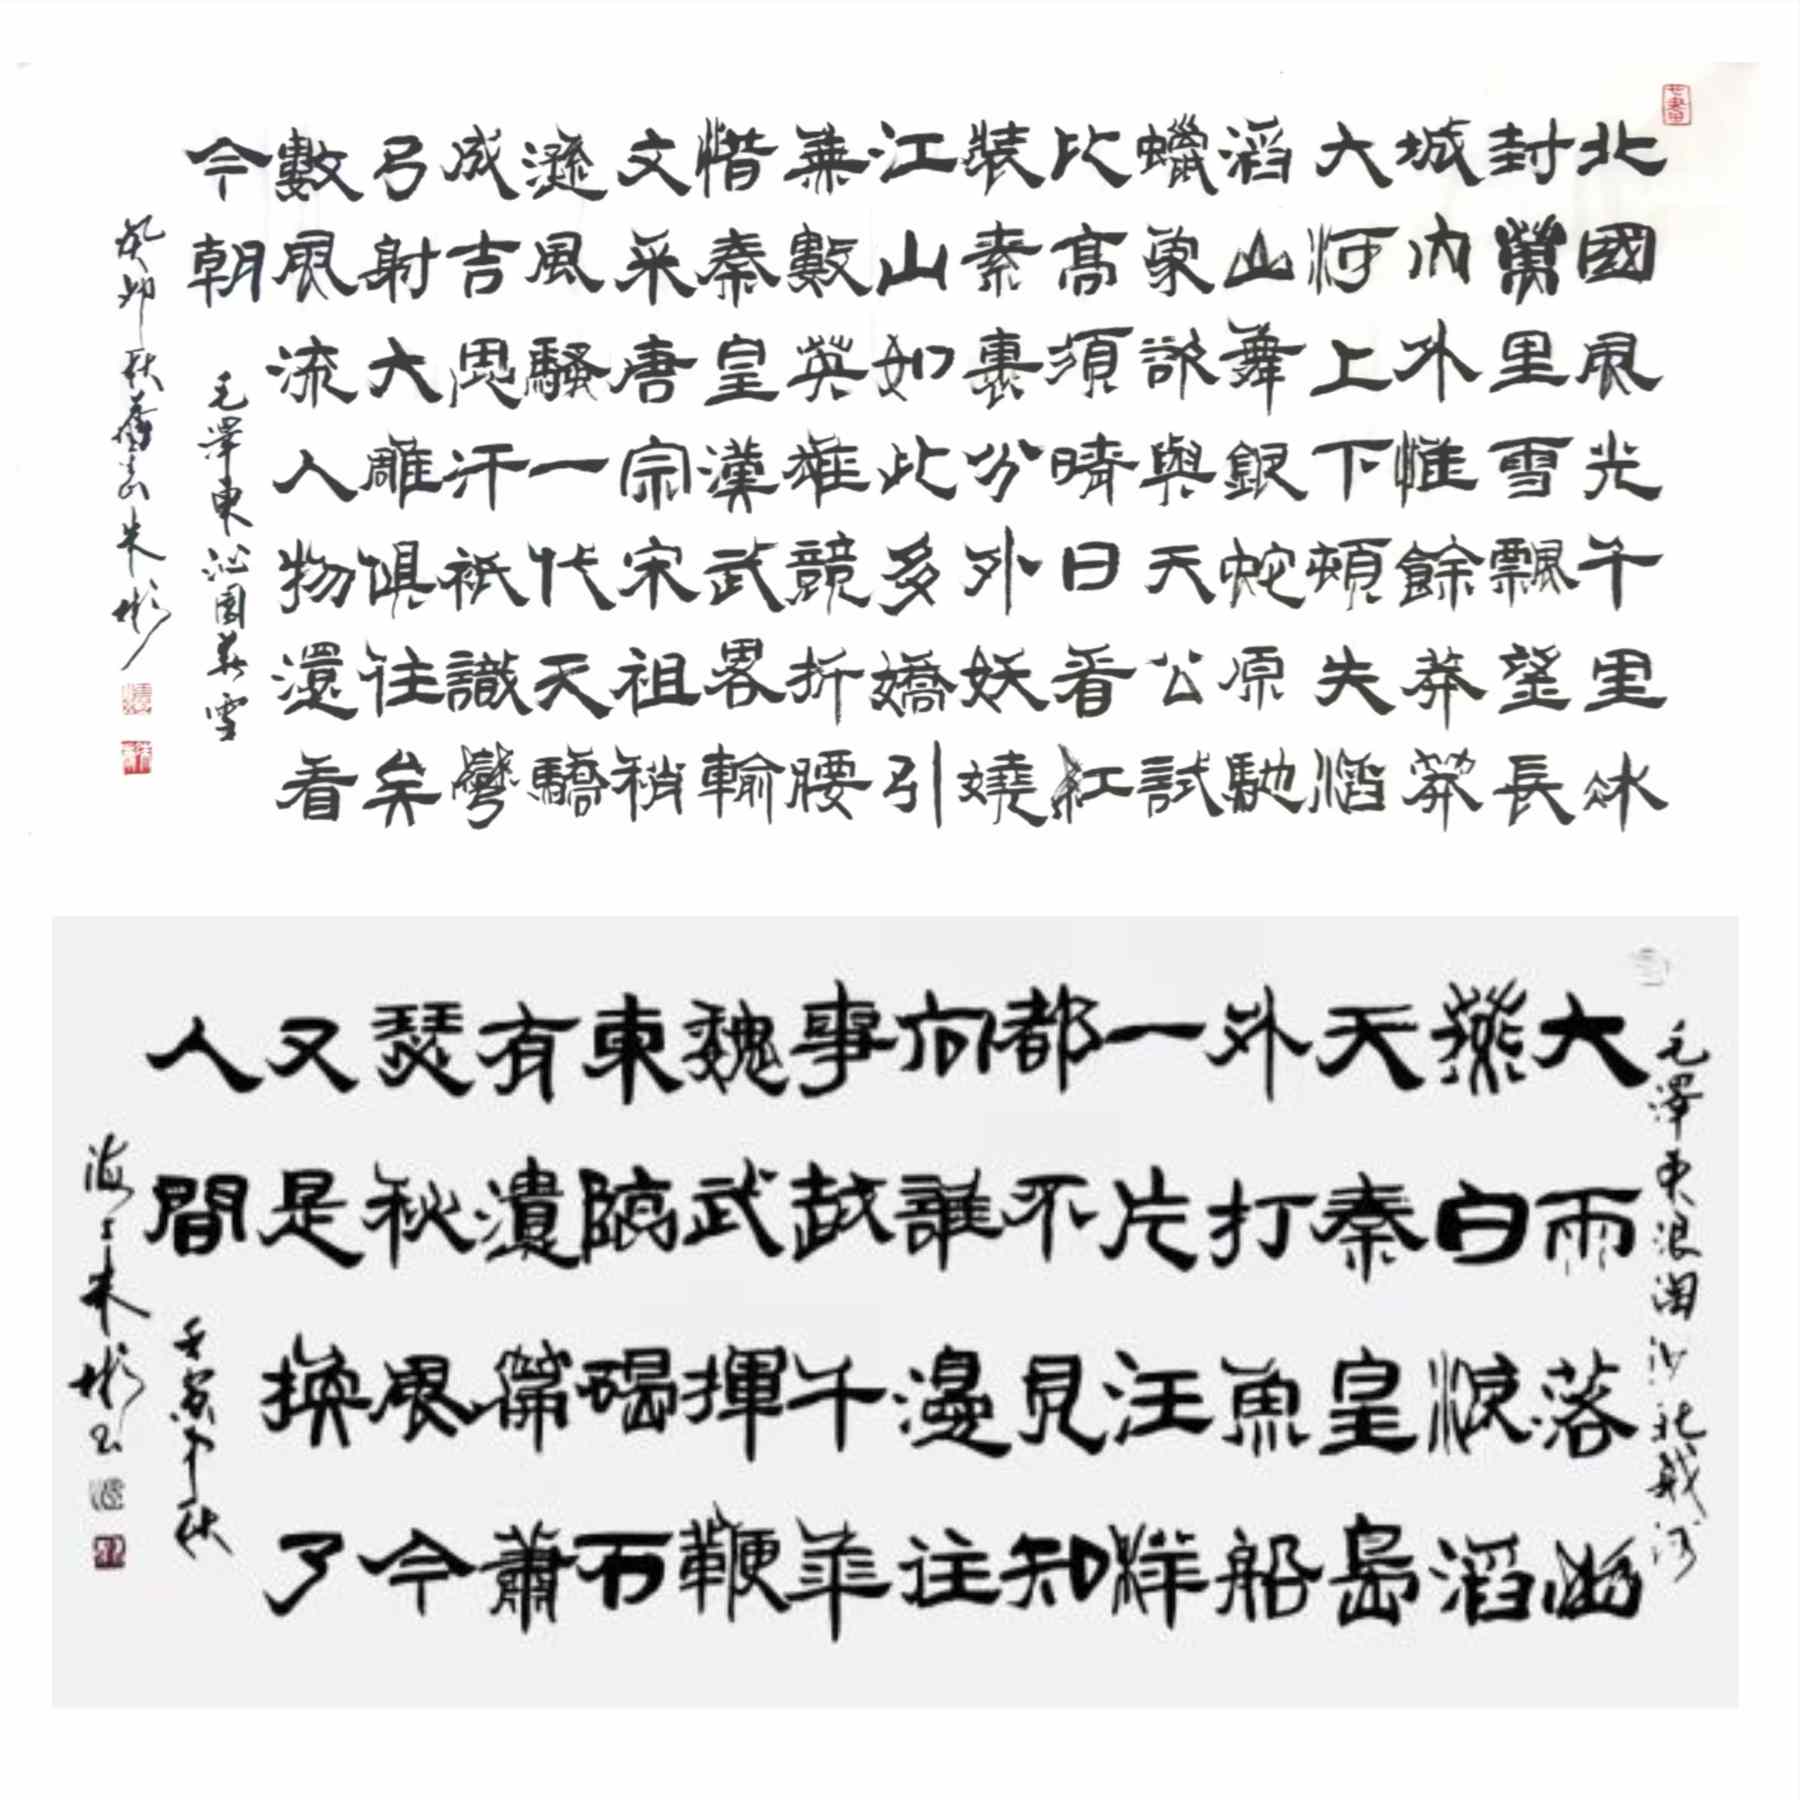 北國風光千里冰
封萬里雪飄望長
城內外惟餘莽莽
大河上下頓失滔
滔山舞銀蛇原馳
蠟象欲與天公試
比高須晴日看紅
裝素裹分外妖嬈
江山如此多嬌引
無數英雄競折腰
惜秦皇漢武畧輸
文采唐宗宋祖稍
遜風騷一代天驕
成吉思汗衹識彎
弓射大雕俱往矣
數風流人物還看
今朝
毛澤東沁園春雪
癸卯秋朱彬
毛澤東浪淘沙北戴河
大雨落幽
燕白浪滔
天秦皇島
外打魚船
一片汪洋
都不見知
向誰邊往
事越千年
魏武揮鞭
東臨碣石
有遺篇蕭
瑟秋風今
又是換了
人間
壬寅中秋
海上朱彬書